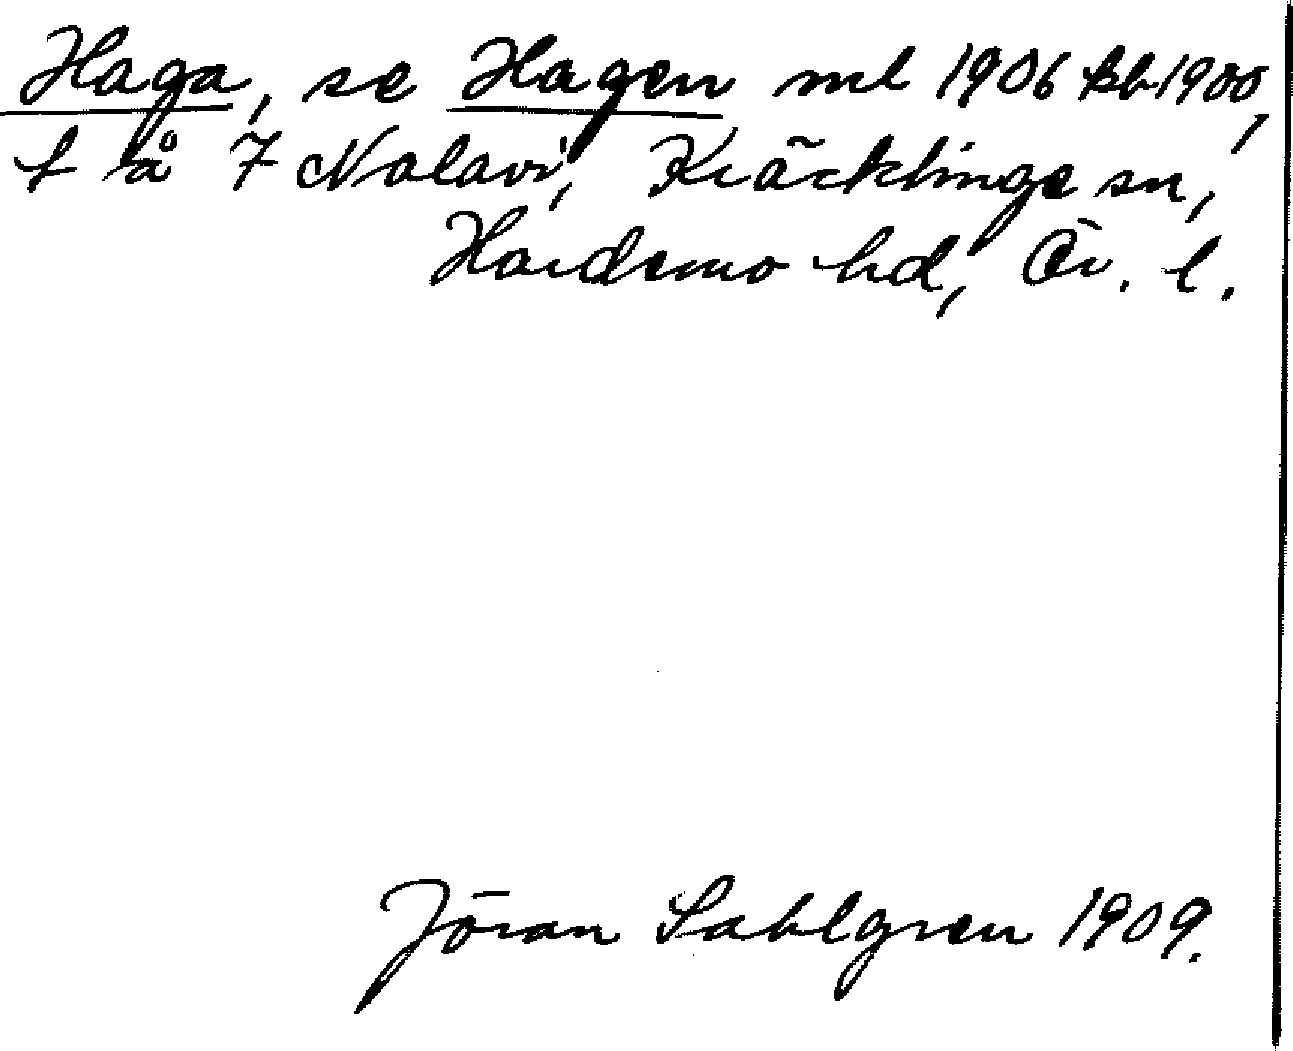 Haga, se Hagen ml 1906 kb 1900,
t å 7 Nalavi, Kräcklinge sn,
Hardemo hd, Ör. l.
Jöran Sahlgren 1909.